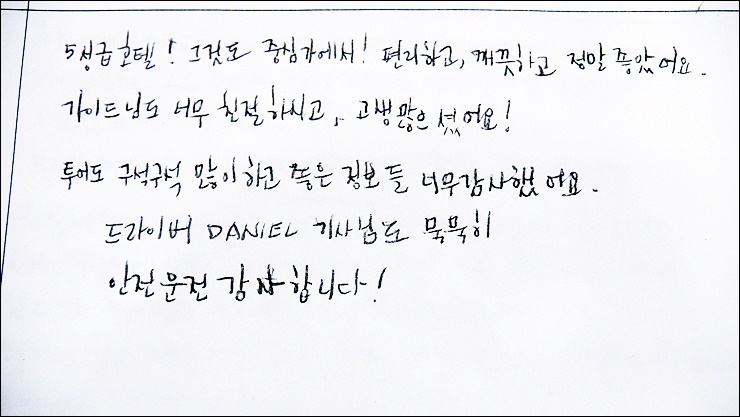 5성급호텔! 그것도 중심가에서! 편리하고, 깨끗하고 정말 좋았어요.
가이드님도 너무 친절하시고, 고생많으셨어요!
투어도 구석구석 많이하고 좋은 정보들 너무감사했어요.
드라이버 DANIEL 기사님도 묵묵히
안전운전 감사합니다!